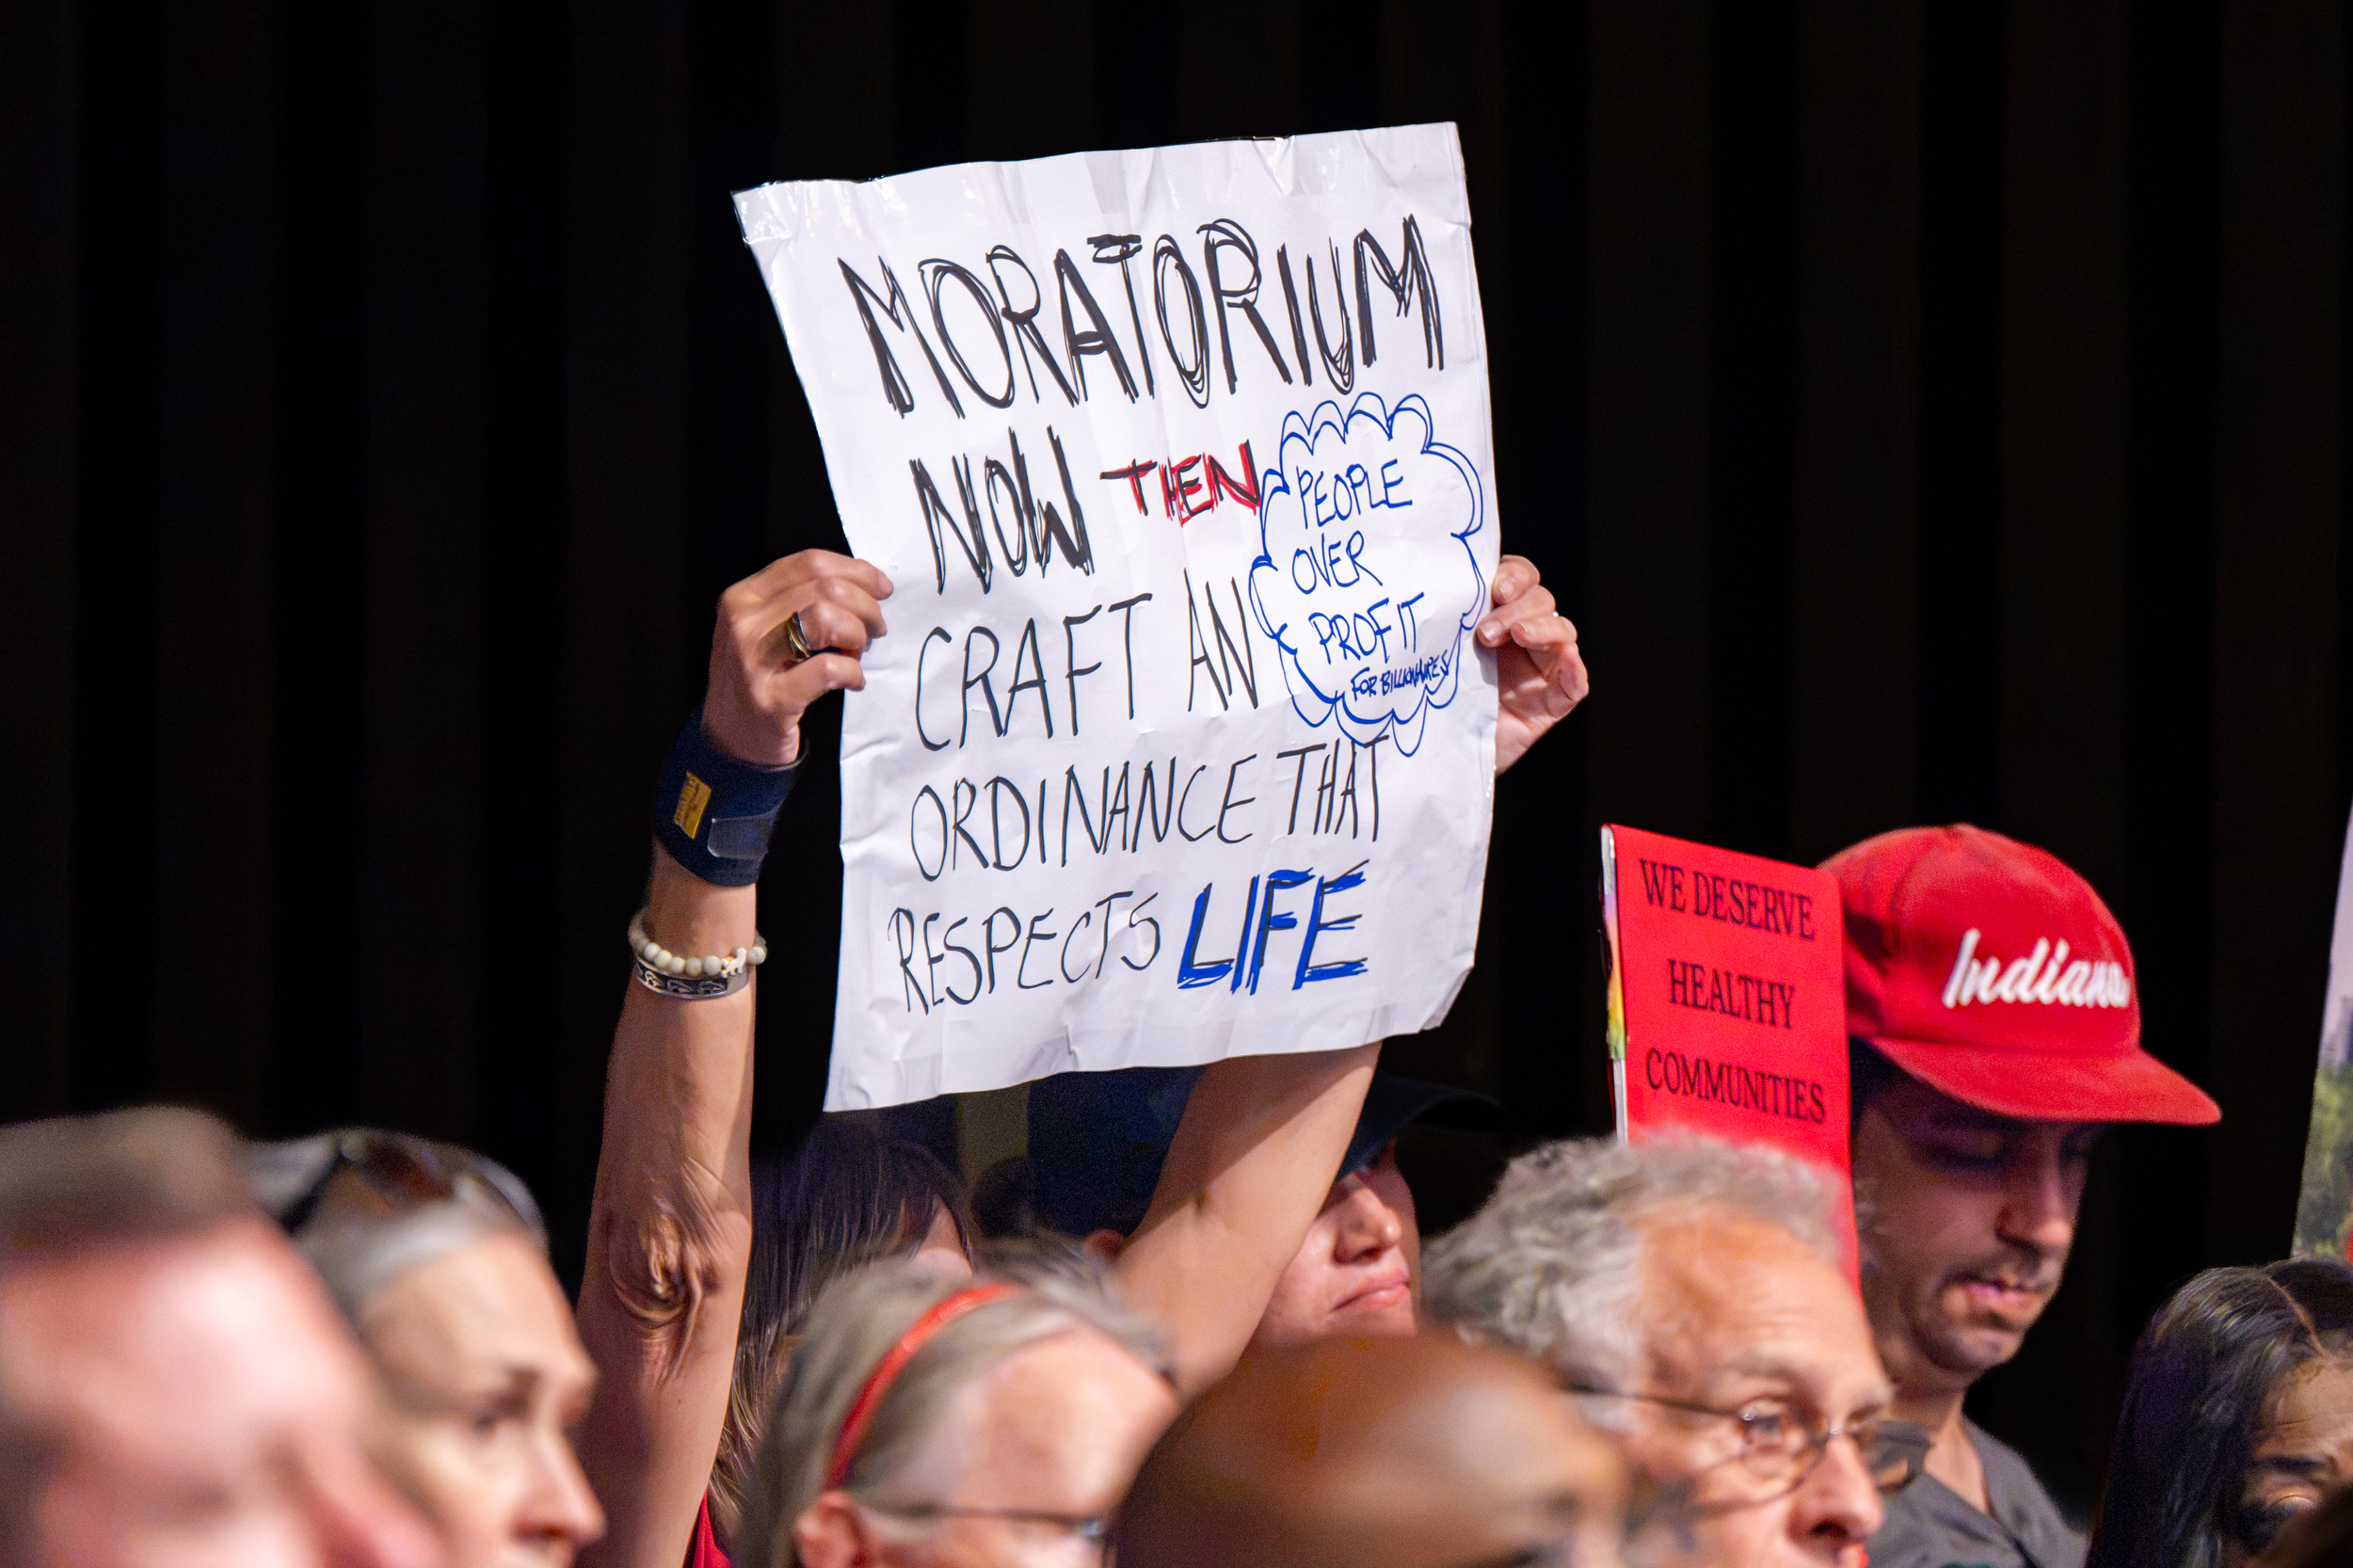 MORATORIUM
NOW THEN
CRAFT AN
ORDINANCE THAT
RESPECTS LIFE
PEOPLE
OVER
PROFIT
FOR BILLIONAIRES
WE DESERVE
HEALTHY
COMMUNITIES
Indiana